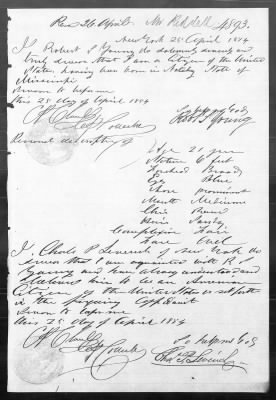 Rec 26 April. Mr Riddell 4593.
New York 25 April 1854
I Robert S Young do solemnly sincerely and
truly swear that I am a Citizen of the United
States, having been born in Natchez State of
Mississippi
Sworn to before me
this 25 day of April 1854
So help me God,
Robt S Young
Personal description of
Age 21 years
Stature 6 feet
Forehead Broad
Eyes Blue
Nose prominent
Mouth Medium
Chin Round
Hair Sandy
Complexion Fair
Face Oval
I, Charles P of New York do
swear that I am acquainted with R S
Young and have always understood and
believe him to be an American
Citizen of the United States as set forth
in the foregoing affidavit
Sworn to before me
this 25 day of April 1854
So help me God
Chas P